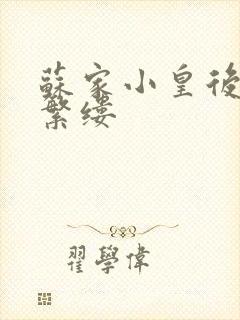 蘇家小皇後
繁缕
翟學偉